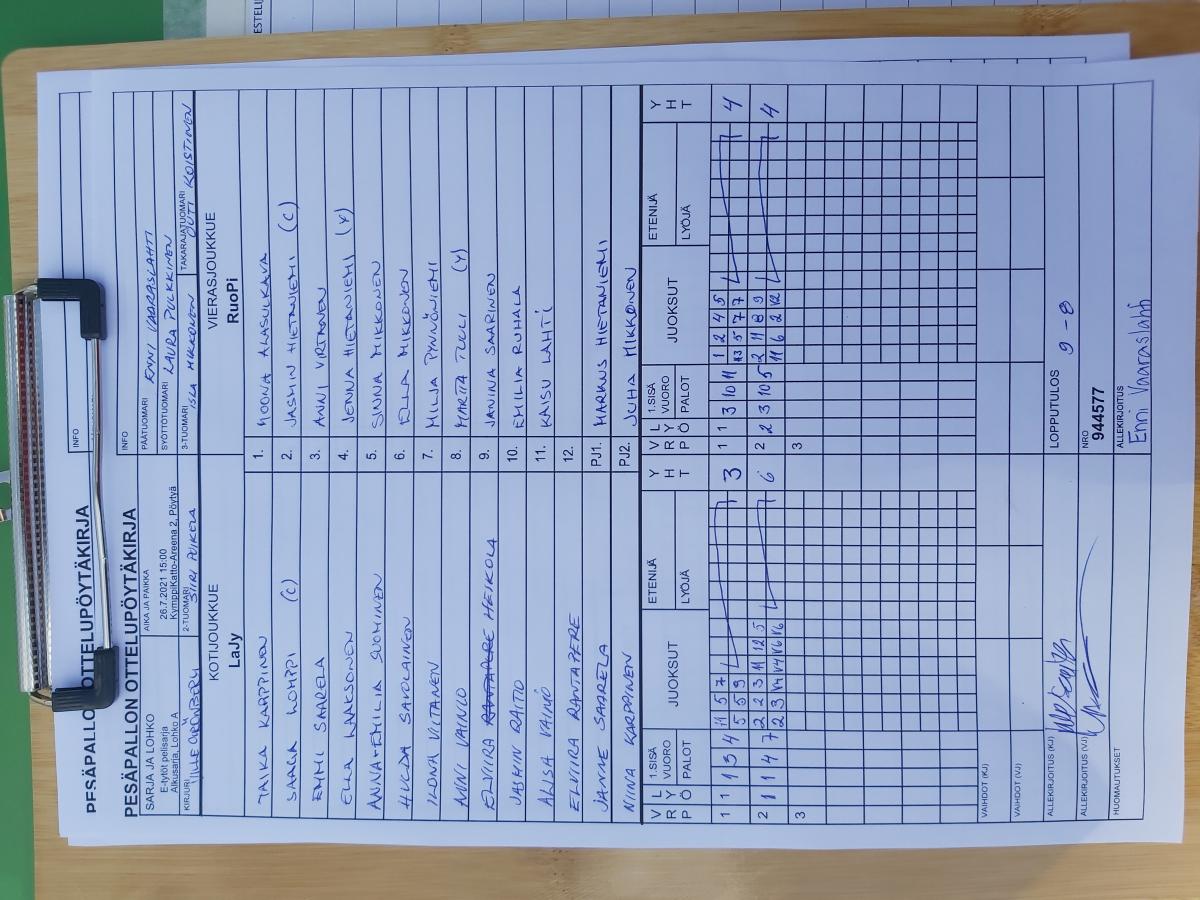 ESTELU
PESÄPALLON OTTELUPÖYTÄKIRJA
INFO
PESÄPALLON OTTELUPÖYTÄKIRJA
INFO
SARJA JA LOHKO
E-tytöt pelisarja
Alkusarja, Lohko A
AIKA JA PAIKKA
26.7.2021 15:00
KymppiKatto-Areena 2, Pöytyä
PÄÄTUOMARI ENNI VAARASLAHTI
SYÖTTÖTUOMARI LAURA PULKKINEN
KIRJURI VILLE
2-TUOMARI SIIRI PUIKOLA
3-TUOMARI ISLA MIKKONEN
TAKARAJATUOMARI OUTI KOISTINEN
KOTIJOUKKUE
LaJy
VIERASJOUKKUE
RuoPi
TAIKA KARPPINEN 1. MOONA ALASULKAVA
SAARA LOMPPI (C) 2. JASMIN HIETANIEMI (C)
EMMI SAARELA 3. ANNI VIRTANEN
ELLA LAAKSONEN 4. JENNA HIETANIEMI (Y)
ANNA-EMILIA SUOMINEN 5. SINNA MIKKONEN
HULDA SAVOLAINEN 6. ELLA MIKKONEN
ILONA VIITANEN 7. MILJA PYNNÖNIEMI
ANNI VAINIO 8. MARTTA TUULI (Y)
ELVIIRA RANTAPERE HEIKOLA 9. JANINA SAARINEN
JASMIN RAITIO 10. EMILIA RUHALA
ALISA VAINIÖ 11. KAISU LAHTI
ELVIIRA RANTAPERE 12.
JANNE SAARELA PJ1. MARKUS HIETANIEMI
NIINA KARPPINEN PJ2. JUHA MIKKONEN
V R P L Y Ö 1.SISÄ VUORO PALOT JUOKSUT ETENIJÄ LYÖJÄ Y H T V R P L Y Ö 1.SISÄ VUORO PALOT JUOKSUT ETENIJÄ LYÖJÄ Y H T
1 1 3 4 11 5 7 3 1 1 3 10 11 1 2 4 5 4
5 5 9 13 5 7 7
2 1 1 4 7 2 2 3 11 12 5 6 2 2 3 10 5 2 11 8 9 4
2 3 V4 V4 V6 V6 11 6 2 12
3 3
VAIHDOT (KJ)
VAIHDOT (VJ)
ALLEKIRJOITUS (KJ)
LOPPUTULOS 9-8
ALLEKIRJOITUS (VJ)
NRO
944577
HUOMAUTUKSET
ALLEKIRJOITUS
Enni Vaaraslahti